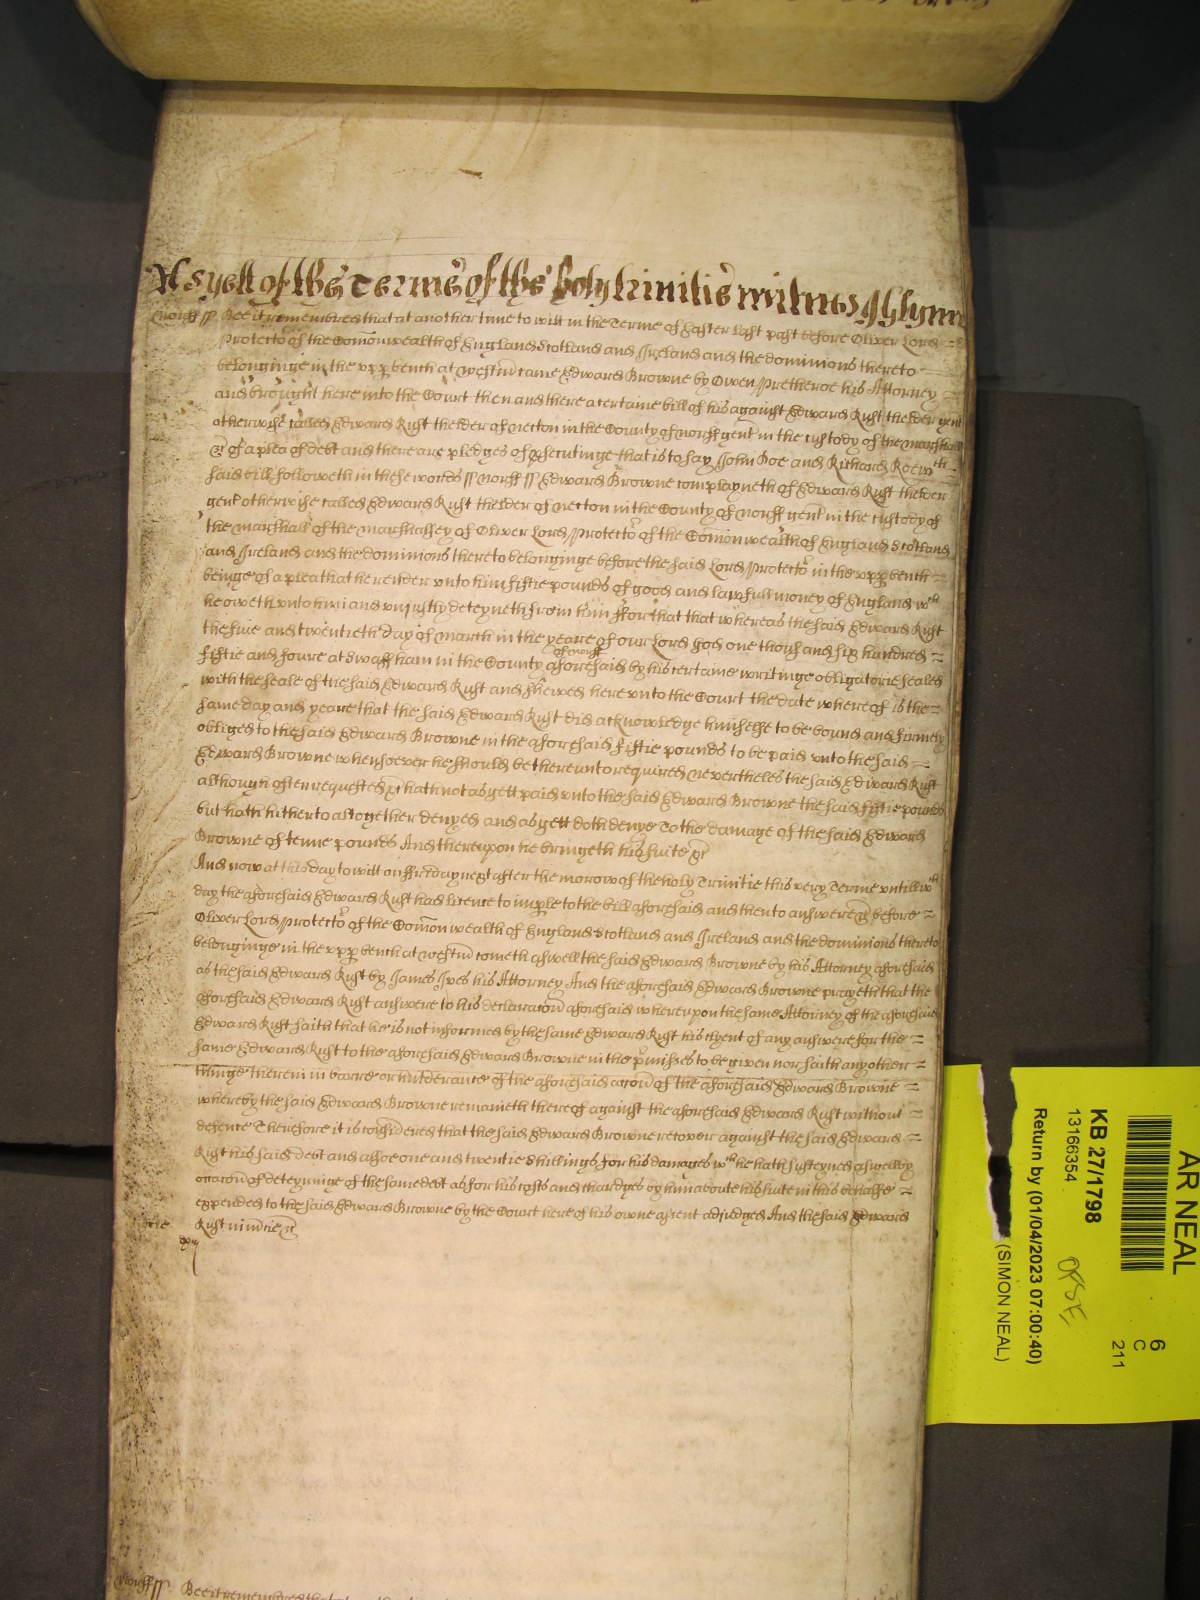 As yett of the Terme of the holy trinitie witnes J Glynn
Norff ss Bee it remembred that at another time to witt in the Terme of Easter last past before Oliver Lord
Protector of the Comonwealth of England Scotland and Ireland and the dominions thereto
belonginge in the upp bench at westm came Edward Browne by Owen Pretheroe his Attorney
and brought here into the Court then and there a certaine bill of his against Edward Rust thelder gent
otherwise called Edward Rust thelder of Necton in the County of Norff gent in the custody of the marshall
&c of a plea of debt and there are pledges of prosecutinge that is to say John Doe and Richard Roe wch
said bill followeth in these words ss Norff ss Edward Browne complayneth of Edward Rust thelder
gent otherwise called Edward Rust thelder of Necton in the County of Norff gent in the custody of
the marshall of the marshalsey of Oliver Lord Protector of the Comonwealth of England Scotland
and Ireland and the dominions thereto belonginge before the said Lord Protector in the upp bench
beinge of a plea that he render unto him fiftie pounds of good and lawfull money of England wch
he oweth unto him and uniustly deteyneth from him ffor that that whereas the said Edward Rust
the five and twentieth day of March in the yeare of our Lord God one thousand six hundred
fiftie and foure at Swaffham in the County of Norff aforesaid by his certaine writinge obligatorie sealed
with the seale of the said Edward Rust and shewed here unto the Court the date whereof is the
same day and yeare that the said Edward Rust did acknowledge himselfe to be bound and firmely
obliged to the said Edward Browne in the aforesaid fiftie pounds to be paid unto the said
Edward Browne whensoever he should be thereunto required nevertheles the said Edward Rust
although often requested &c hath not as yett paid unto the said Edward Browne the said fiftie pounds
but hath hitherto altogether denyed and as yett doth denye To the damage of the said Edward
Browne of tenne pounds And thereupon he bringeth his suite &c
And now at this day to witt on ffriday next after the morow of the holy Trinitie this very Terme untill wch
day the aforesaid Edward Rust had licence to imple to the bill aforesaid and then to answere &c before
Oliver Lord Protector of the Comon wealth of England Scotland and Ireland and the dominions thereto
belonginge in the upp bench at westm cometh aswell the said Edward Browne by his Attorney aforesaid
as the said Edward Rust by James Ives his Attorney And the aforesaid Edward Browne prayeth that the
aforesaid Edward Rust answere to his declaracon aforesaid whereupon the same Attorney of the aforesaid
Edward Rust saith that he is not informed by the same Edward Rust his Clyent of any answere for the
same Edward Rust to the aforesaid Edward Browne in the pmisses to be given nor saith any other
thinge therein in barre or hinderance of the aforesaid accon of the aforesaid Edward Browne
whereby the said Edward Browne remaineth thereof against the aforesaid Edward Rust without
defence Therefore it is considered that the said Edward Browne recover against the said Edward
Rust his said debt and alsoe one and twentie shillings for his damages wch he hath susteyned aswell by
occacon of deteyninge of the same debt as for his costs and chardges by him aboute his suite in this behalfe
expended to the said Edward Browne by the Court here of his owne assent adjudged And the said Edward
Rust in mcie &c
Norff ss Bee it remembred that
AR NEAL
6
C
211
KB 27/1798
13166354
Return by (01/04/2023 07:00:40)
(SIMON NEAL)